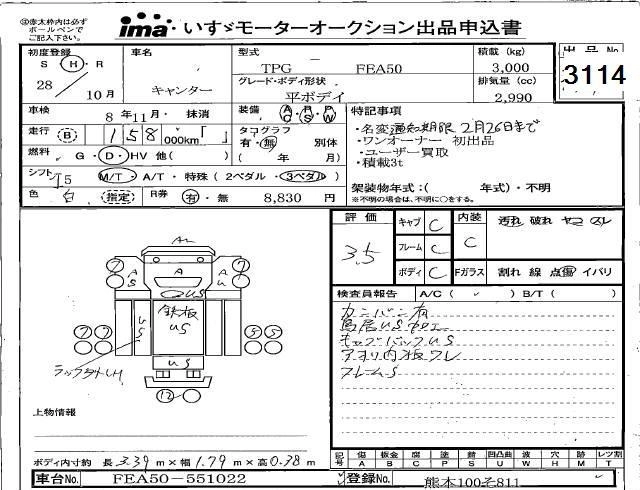 ※赤太枠内は必ず
ボールペンで
ご記入下さい。
ima いすゞモーターオークション出品申込書
初度登録 車名 型式 積載 (kg) 出品No
S H・R TPG － FEA50 3,000
28 / 10月 キャンター グレード・ボディ形状 排気量 (cc) 3114
平ボディ 2,990
車検 8年11月・抹消 装備 A/C P/S R/W P/W 特記事項
走行 (B) 158,000km「 」 タコグラフ 有・無 別体 ・名変通知期限 2月26日まで
・ワンオーナー 初出品
燃料 G・D・HV 他( ) ( 年 月) ・ユーザー買取
・積載3t
シフト F5 M/T・A/T・特殊 (2ペダル・3ペダル)
色 白 (指定) R券 有・無 8,830 円 架装物年式:( 年式)・不明
※不明の場合は、不明に○をする。
評価 キャブ C 内装 汚れ 破れ ヤコ スレ
3.5 フレーム C C
ボディ C Fガラス 割れ 線 点傷 イバリ
検査員報告 A/C ( ✓ ) B/T ( )
カンバン有
鳥居US
キャブバックUS
アオリ内板ワレ
フレームS
鉄板
US
ラック外LH
上物情報
ボディ内寸約 長 3.39 m×幅 1.79 m×高 0.38 m
記号 傷 板金 腐 塗 錆 凹凸曲 波 穴 時外 レツ割
A B C P S U W H M T
車台No. FEA50-551022 登録No. 熊本100そ811